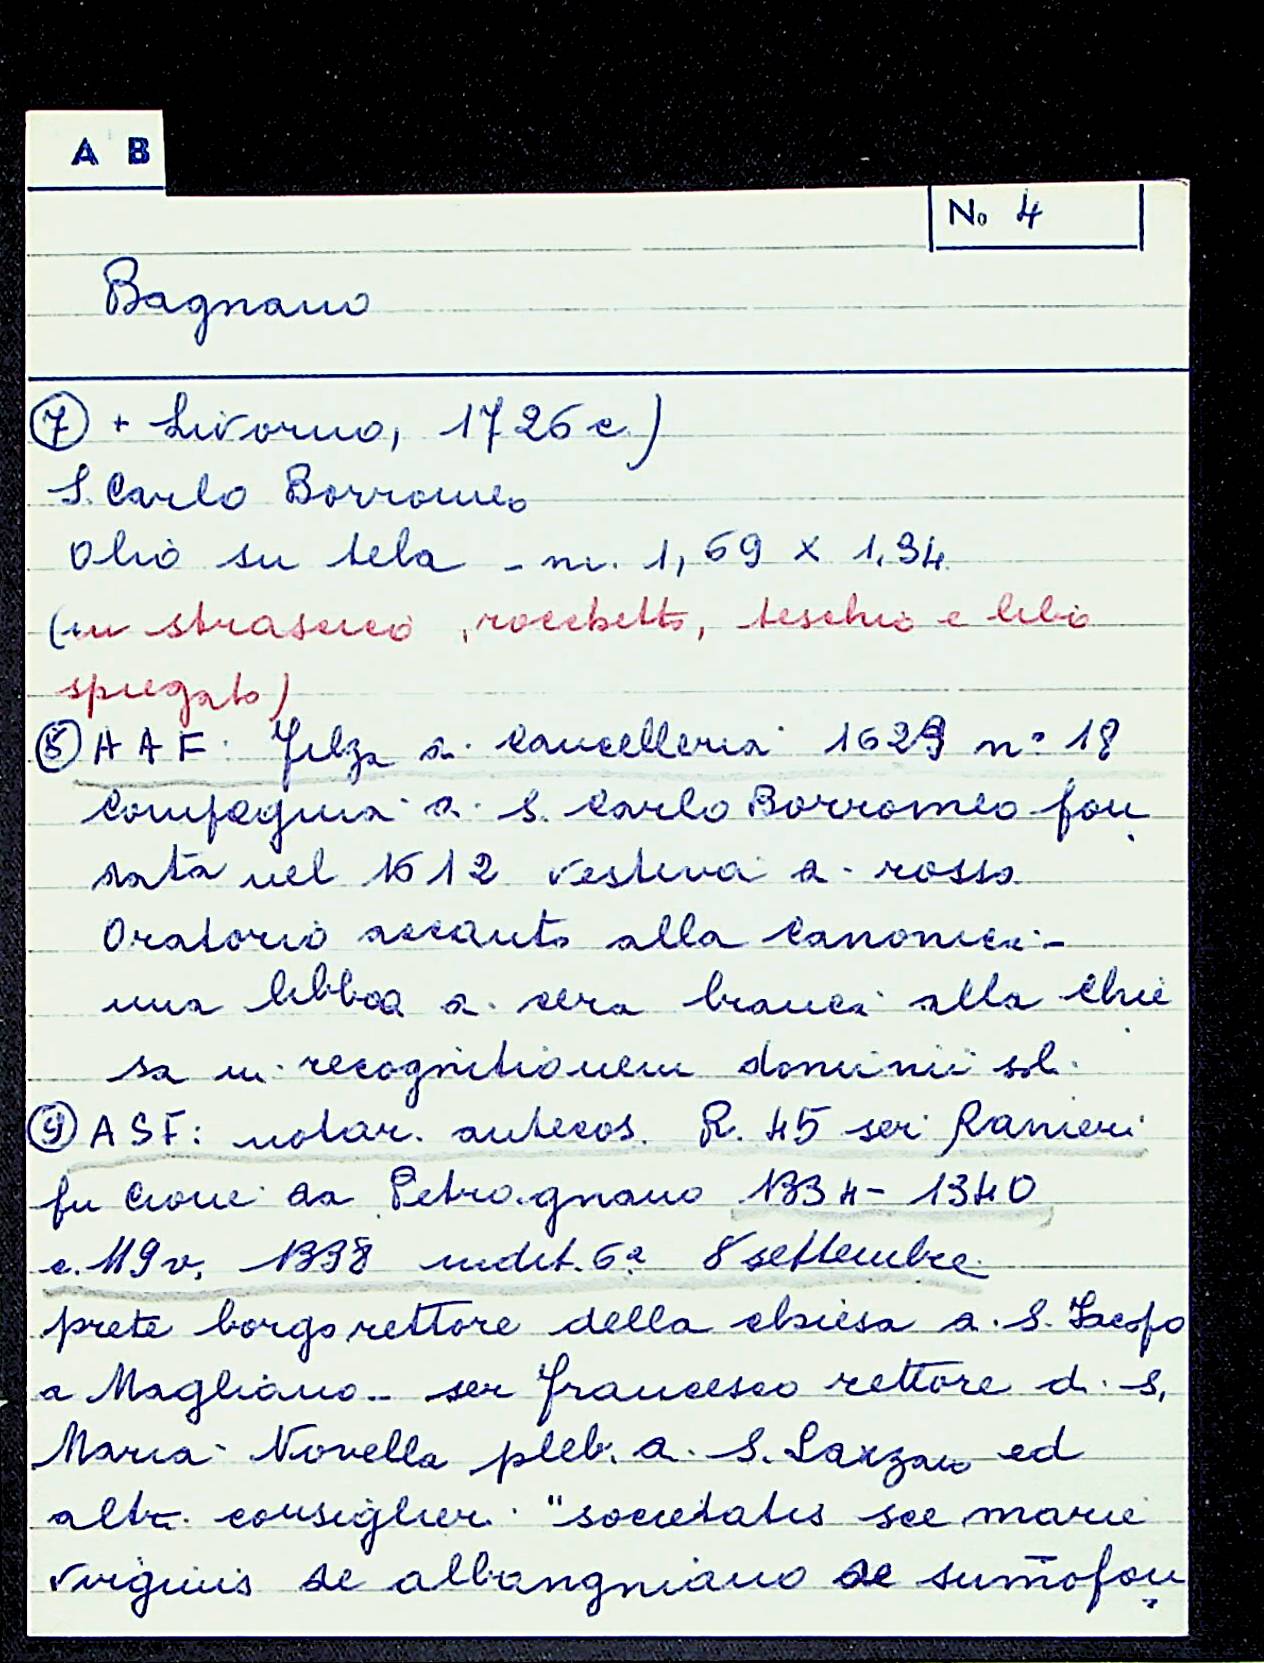 A B
No 4
Bagnano
7 + Livorno, 1726 c.)
S. Carlo Borromeo
Olio su tela - m. 1,69 x 1,34
(in strascico, rocchetto, teschio e libro
spiegato)
8 AAF: filza di Cancelleria 1629 n° 18
Compagnia di S. Carlo Borromeo fon
data nel 1612 vestiva di rosso
Oratorio accanto alla canonica -
una libbra di cera bianca alla chie
sa in recognitionem dominii sol.
9 ASF: notar. antecos. R. 45 ser Ranieri
fu Cione da Petrognano 1334-1340
c. 119 v, 1338 indit. 6a 8 settembre
prete borgo rettore della chiesa di S. Jacopo
a Magliano - ser Francesco rettore di S.
Maria Novella pleb. di S. Lazzaro ed
altri consiglieri "societatis sce marie
virginis de albangniano de sumofon